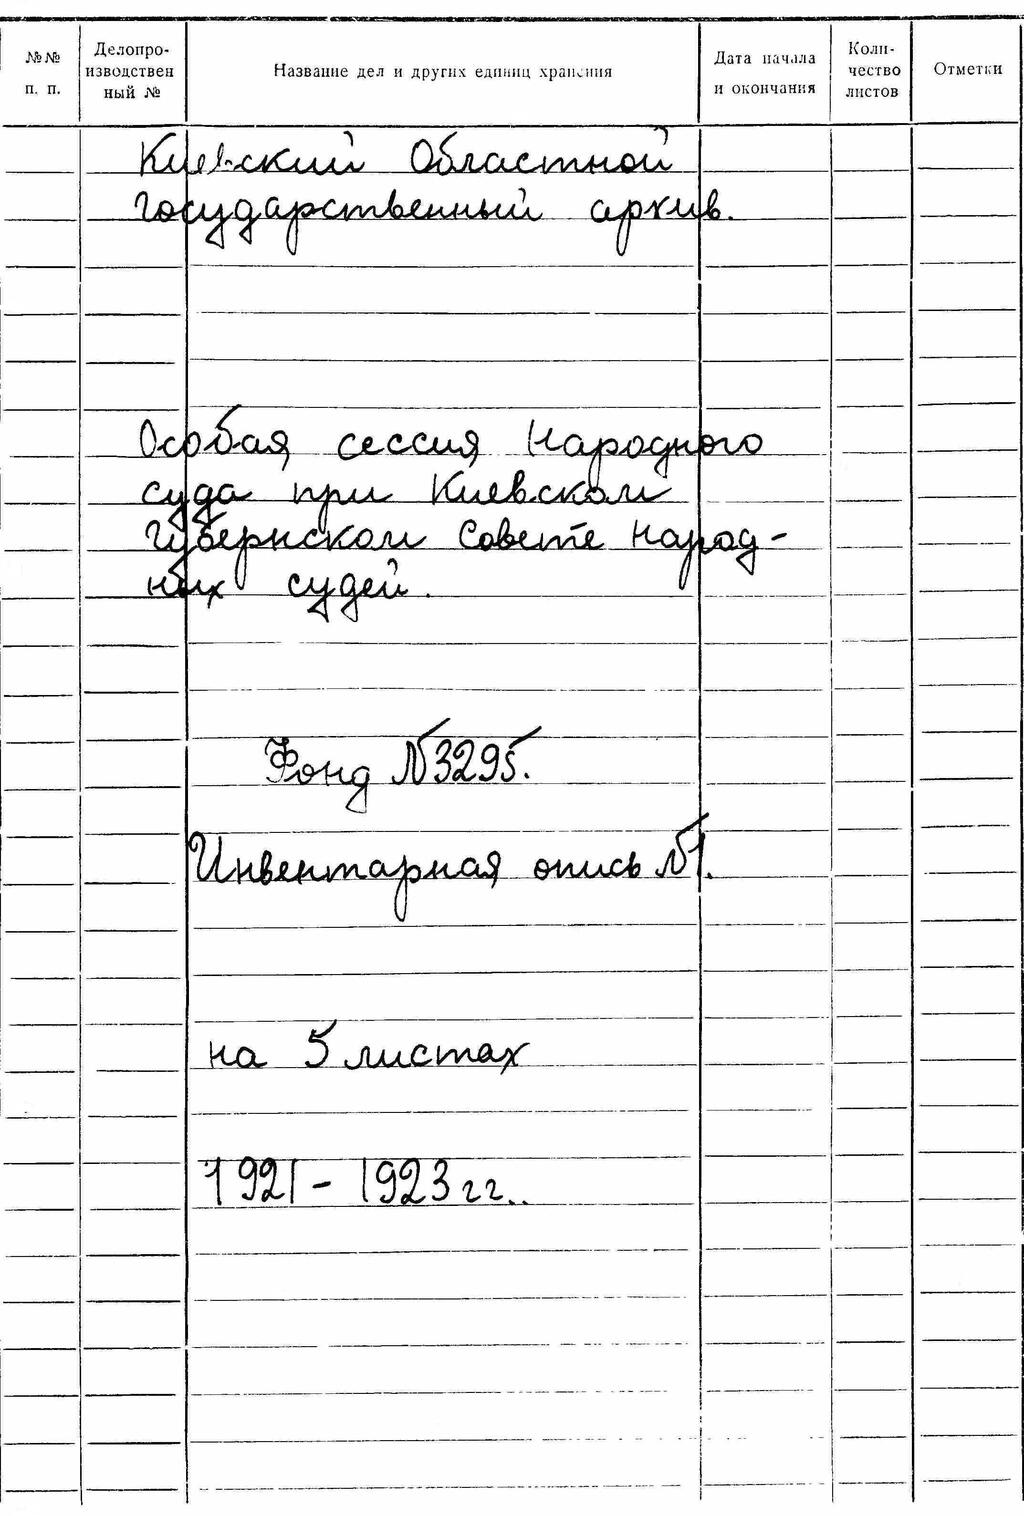 №№ п. п.
Делопро-
изводствен
ный №
Название дел и других единиц хранения
Дата начала
и окончания
Коли-
чество
листов
Отметки
Киевский Областной
государственный архив.
Особая сессия Народного
суда при Киевском
Губернском Совете Народ-
ных судей.
Фонд №3295.
Инвентарная опись №1.
на 5 листах
1921 - 1923 гг..